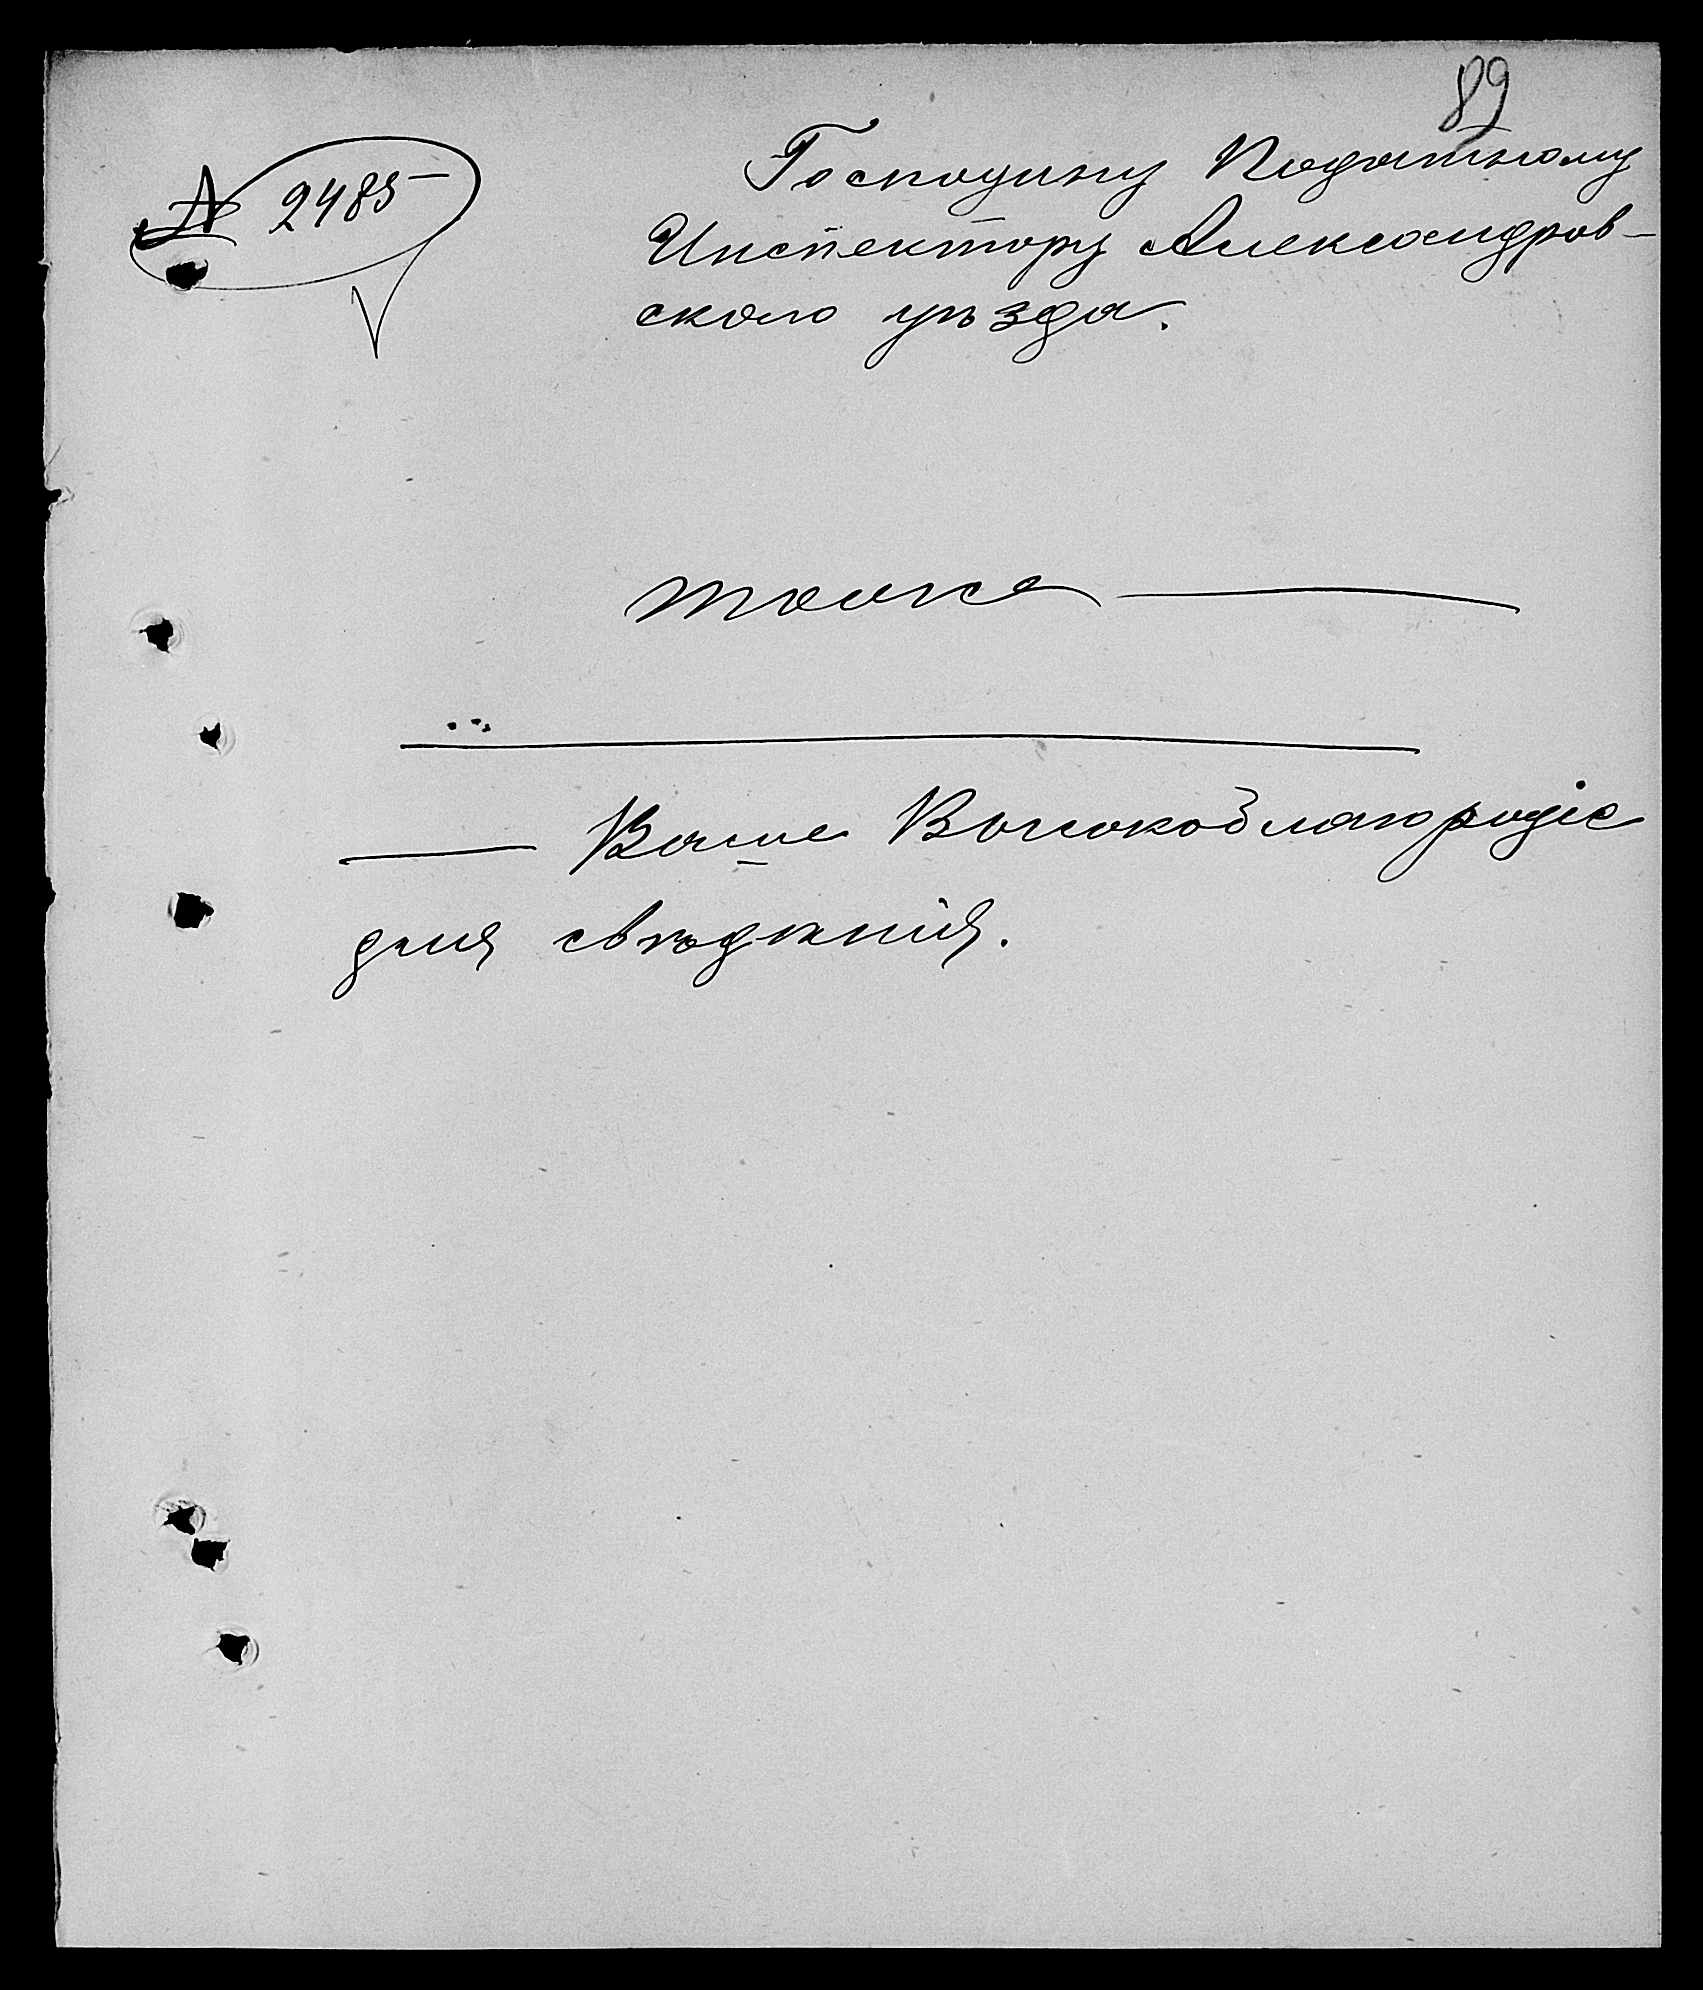 89
№ 2485
Господину Податному
Инспектору Александров-
скаго уѣзда.
тоже
Ваше Высокоблагородіе
для свѣдѣнія.